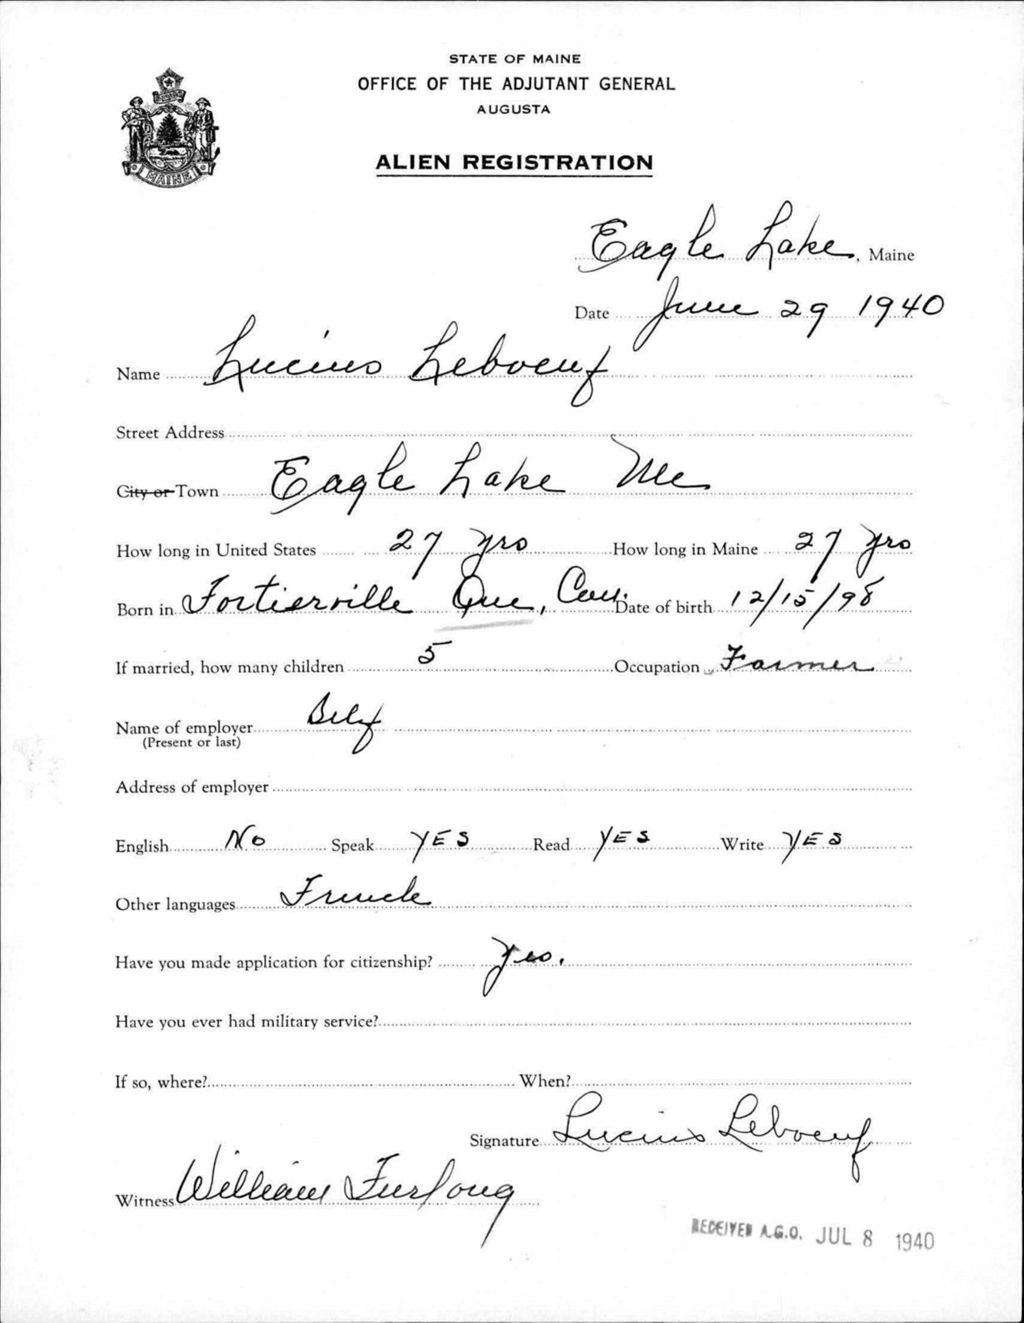 STATE OF MAINE
OFFICE OF THE ADJUTANT GENERAL
AUGUSTA
ALIEN REGISTRATION
MAINE
Eagle Lake, Maine
Date June 29 1940
Name Lucius Leboeuf
Street Address
City or Town Eagle Lake Me
How long in United States 27 yrs How long in Maine 27 yrs
Born in Fortierville Que, Can. Date of birth 12/15/98
If married, how many children 5 Occupation Farmer
Name of employer Self
(Present or last)
Address of employer
English No Speak YES Read YES Write YES
Other languages French
Have you made application for citizenship? Yes.
Have you ever had military service?
If so, where? When?
Signature Lucius Leboeuf
Witness William Furlong
RECEIVED A.G.O. JUL 8 1940